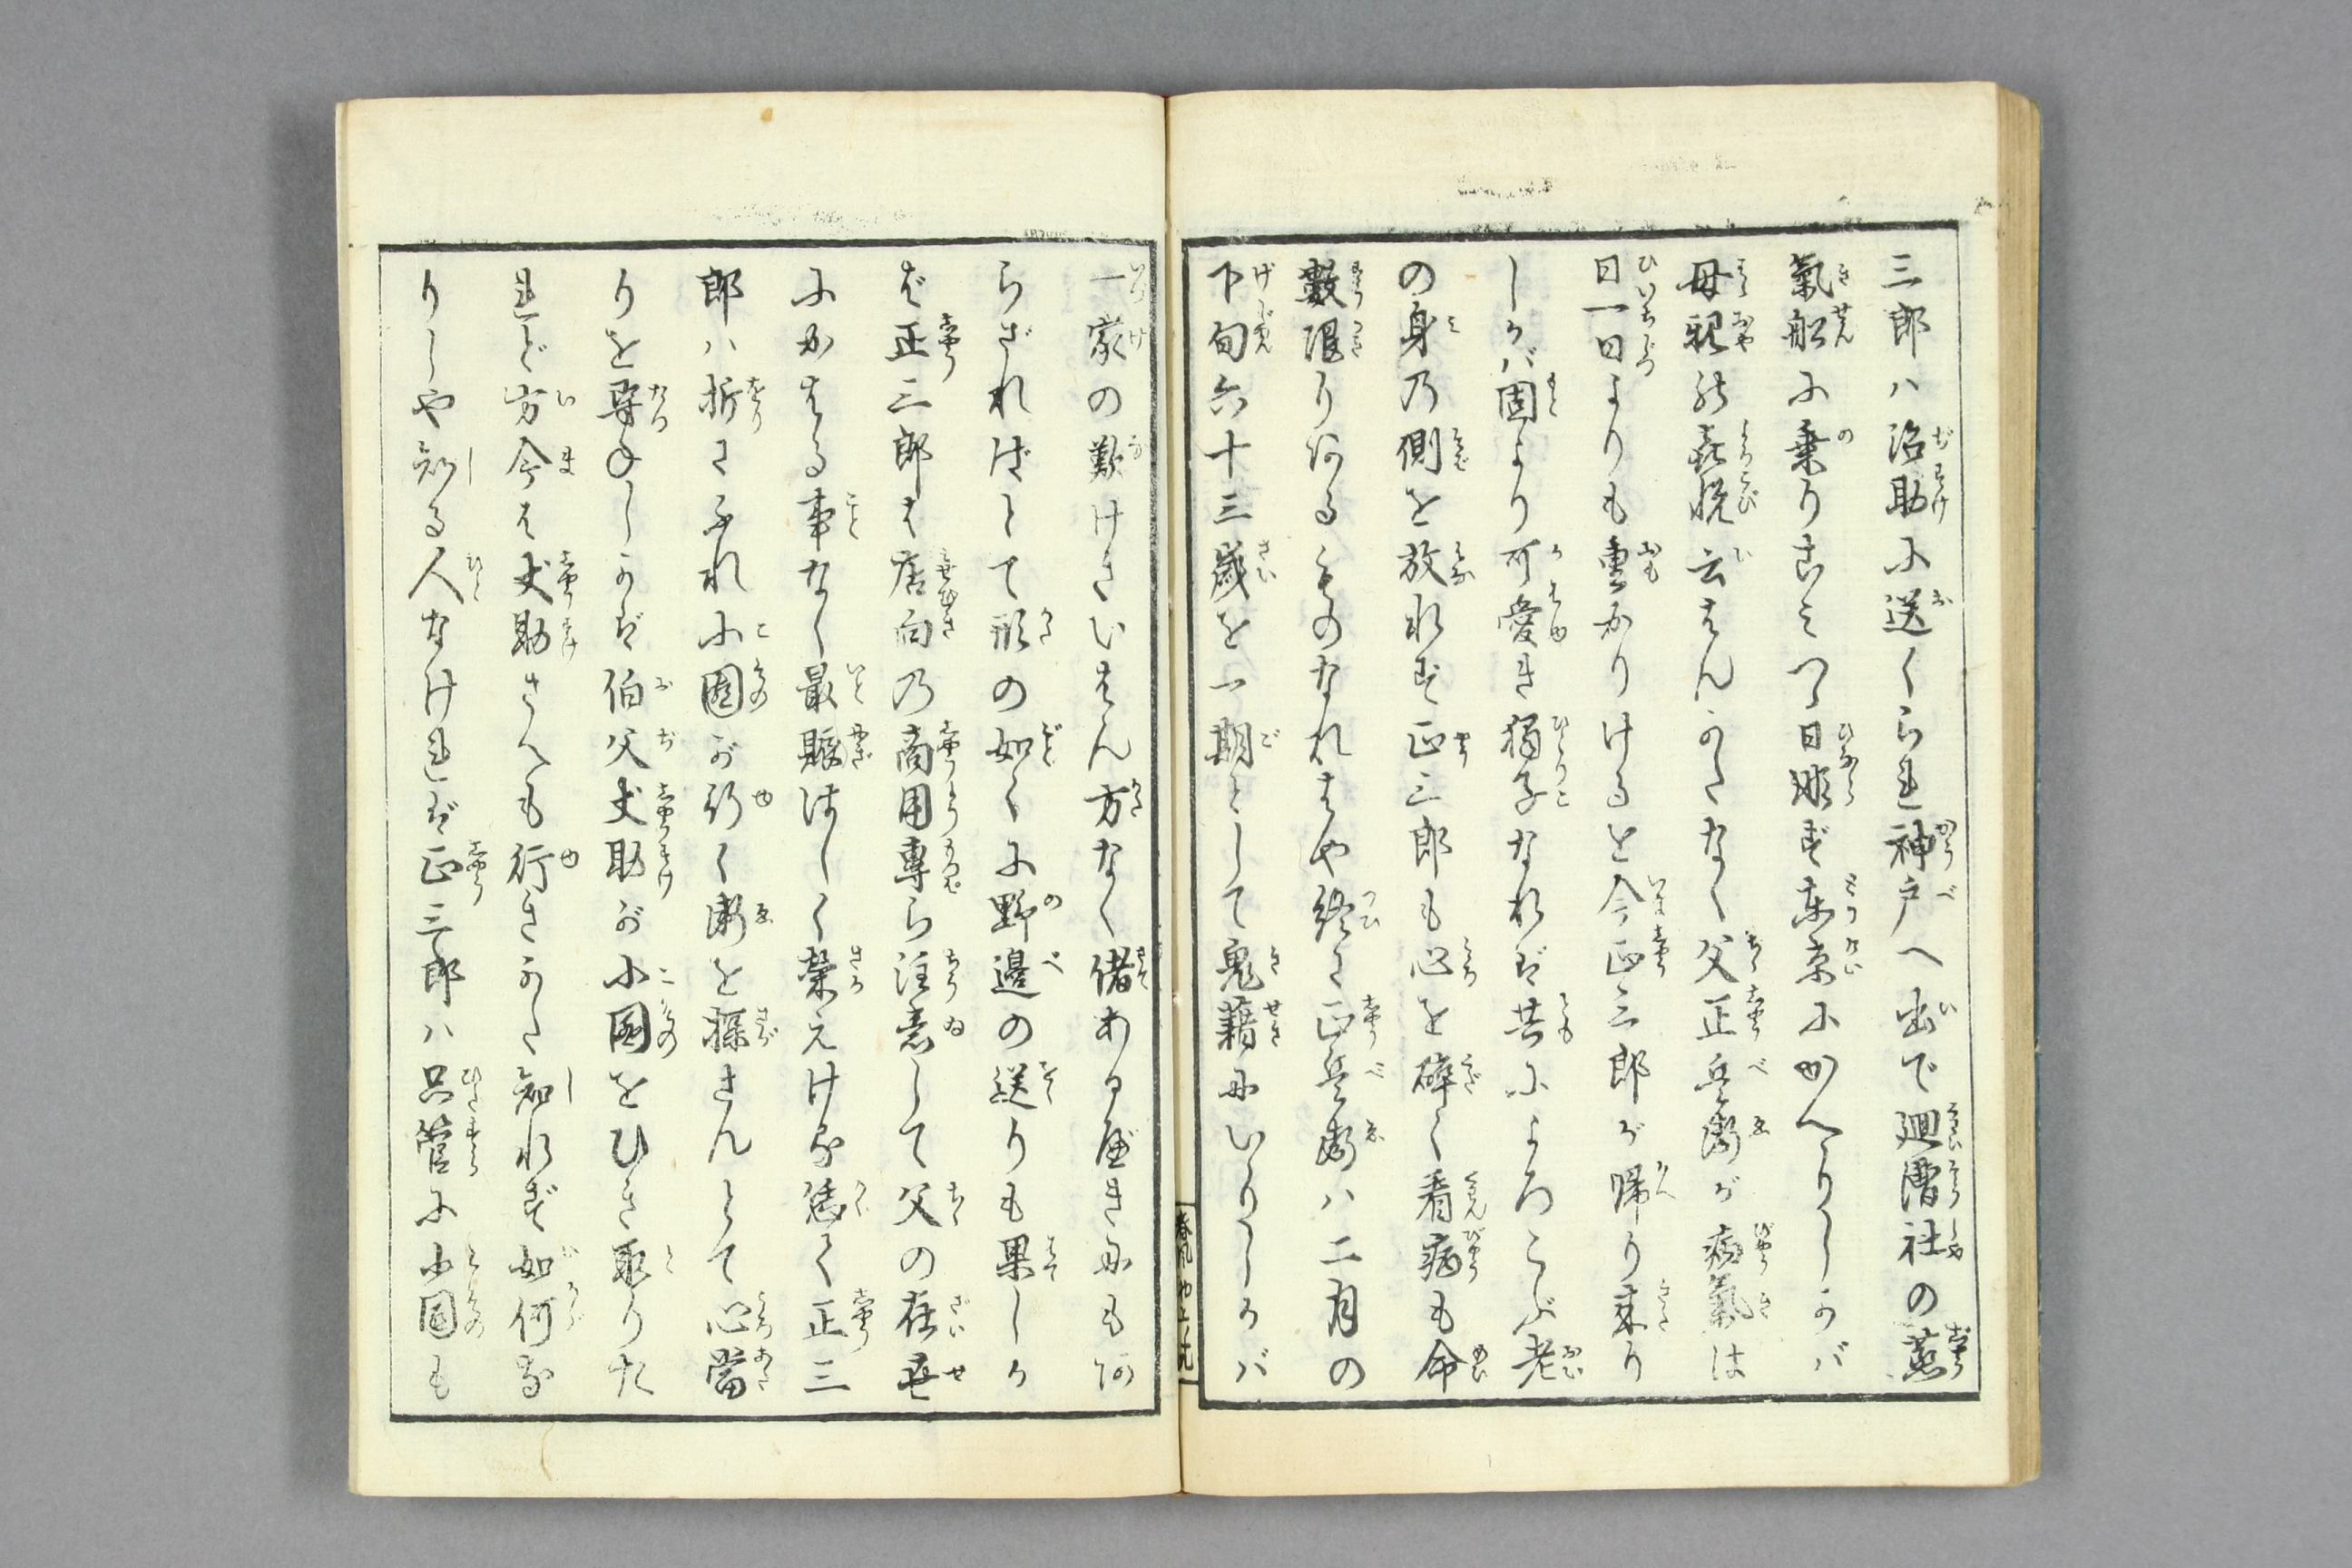 三郎ハ治助に送くられ神戸へ出で廻漕社の蒸
氣船に乗り込みつゝ日成らず東京にかへりしかバ
母親の喜悦云はんかたなく父正兵衛が病氣は
日一日よりも重かりけるを今正三郎が帰り来り
しかバ固より可愛き獨子なれバ共によろこぶ老
の身の側を放れず正三郎も心を碎く看病も命
數限りあるものなればや終に正兵衛ハ二月の
下旬六十三歳を一期として鬼籍にいりしかバ
一家の歎けきいはん方なく偖あるべきにもあ
らざればとて形の如くに野邊の送りも果しか
ば正三郎は店向の商用専ら注意して父の在世
にかはる事なく最賑はしく榮えける恁く正三
郎ハ折にふれ小園が行衛を探さんとて心當
りを尋ねしかど伯父丈助が小園をひき取りた
れど方今は丈助さへも行きかた知れず如何な
りしや知る人なければ正三郎ハ只管に小園も
春風 中ノ上 九